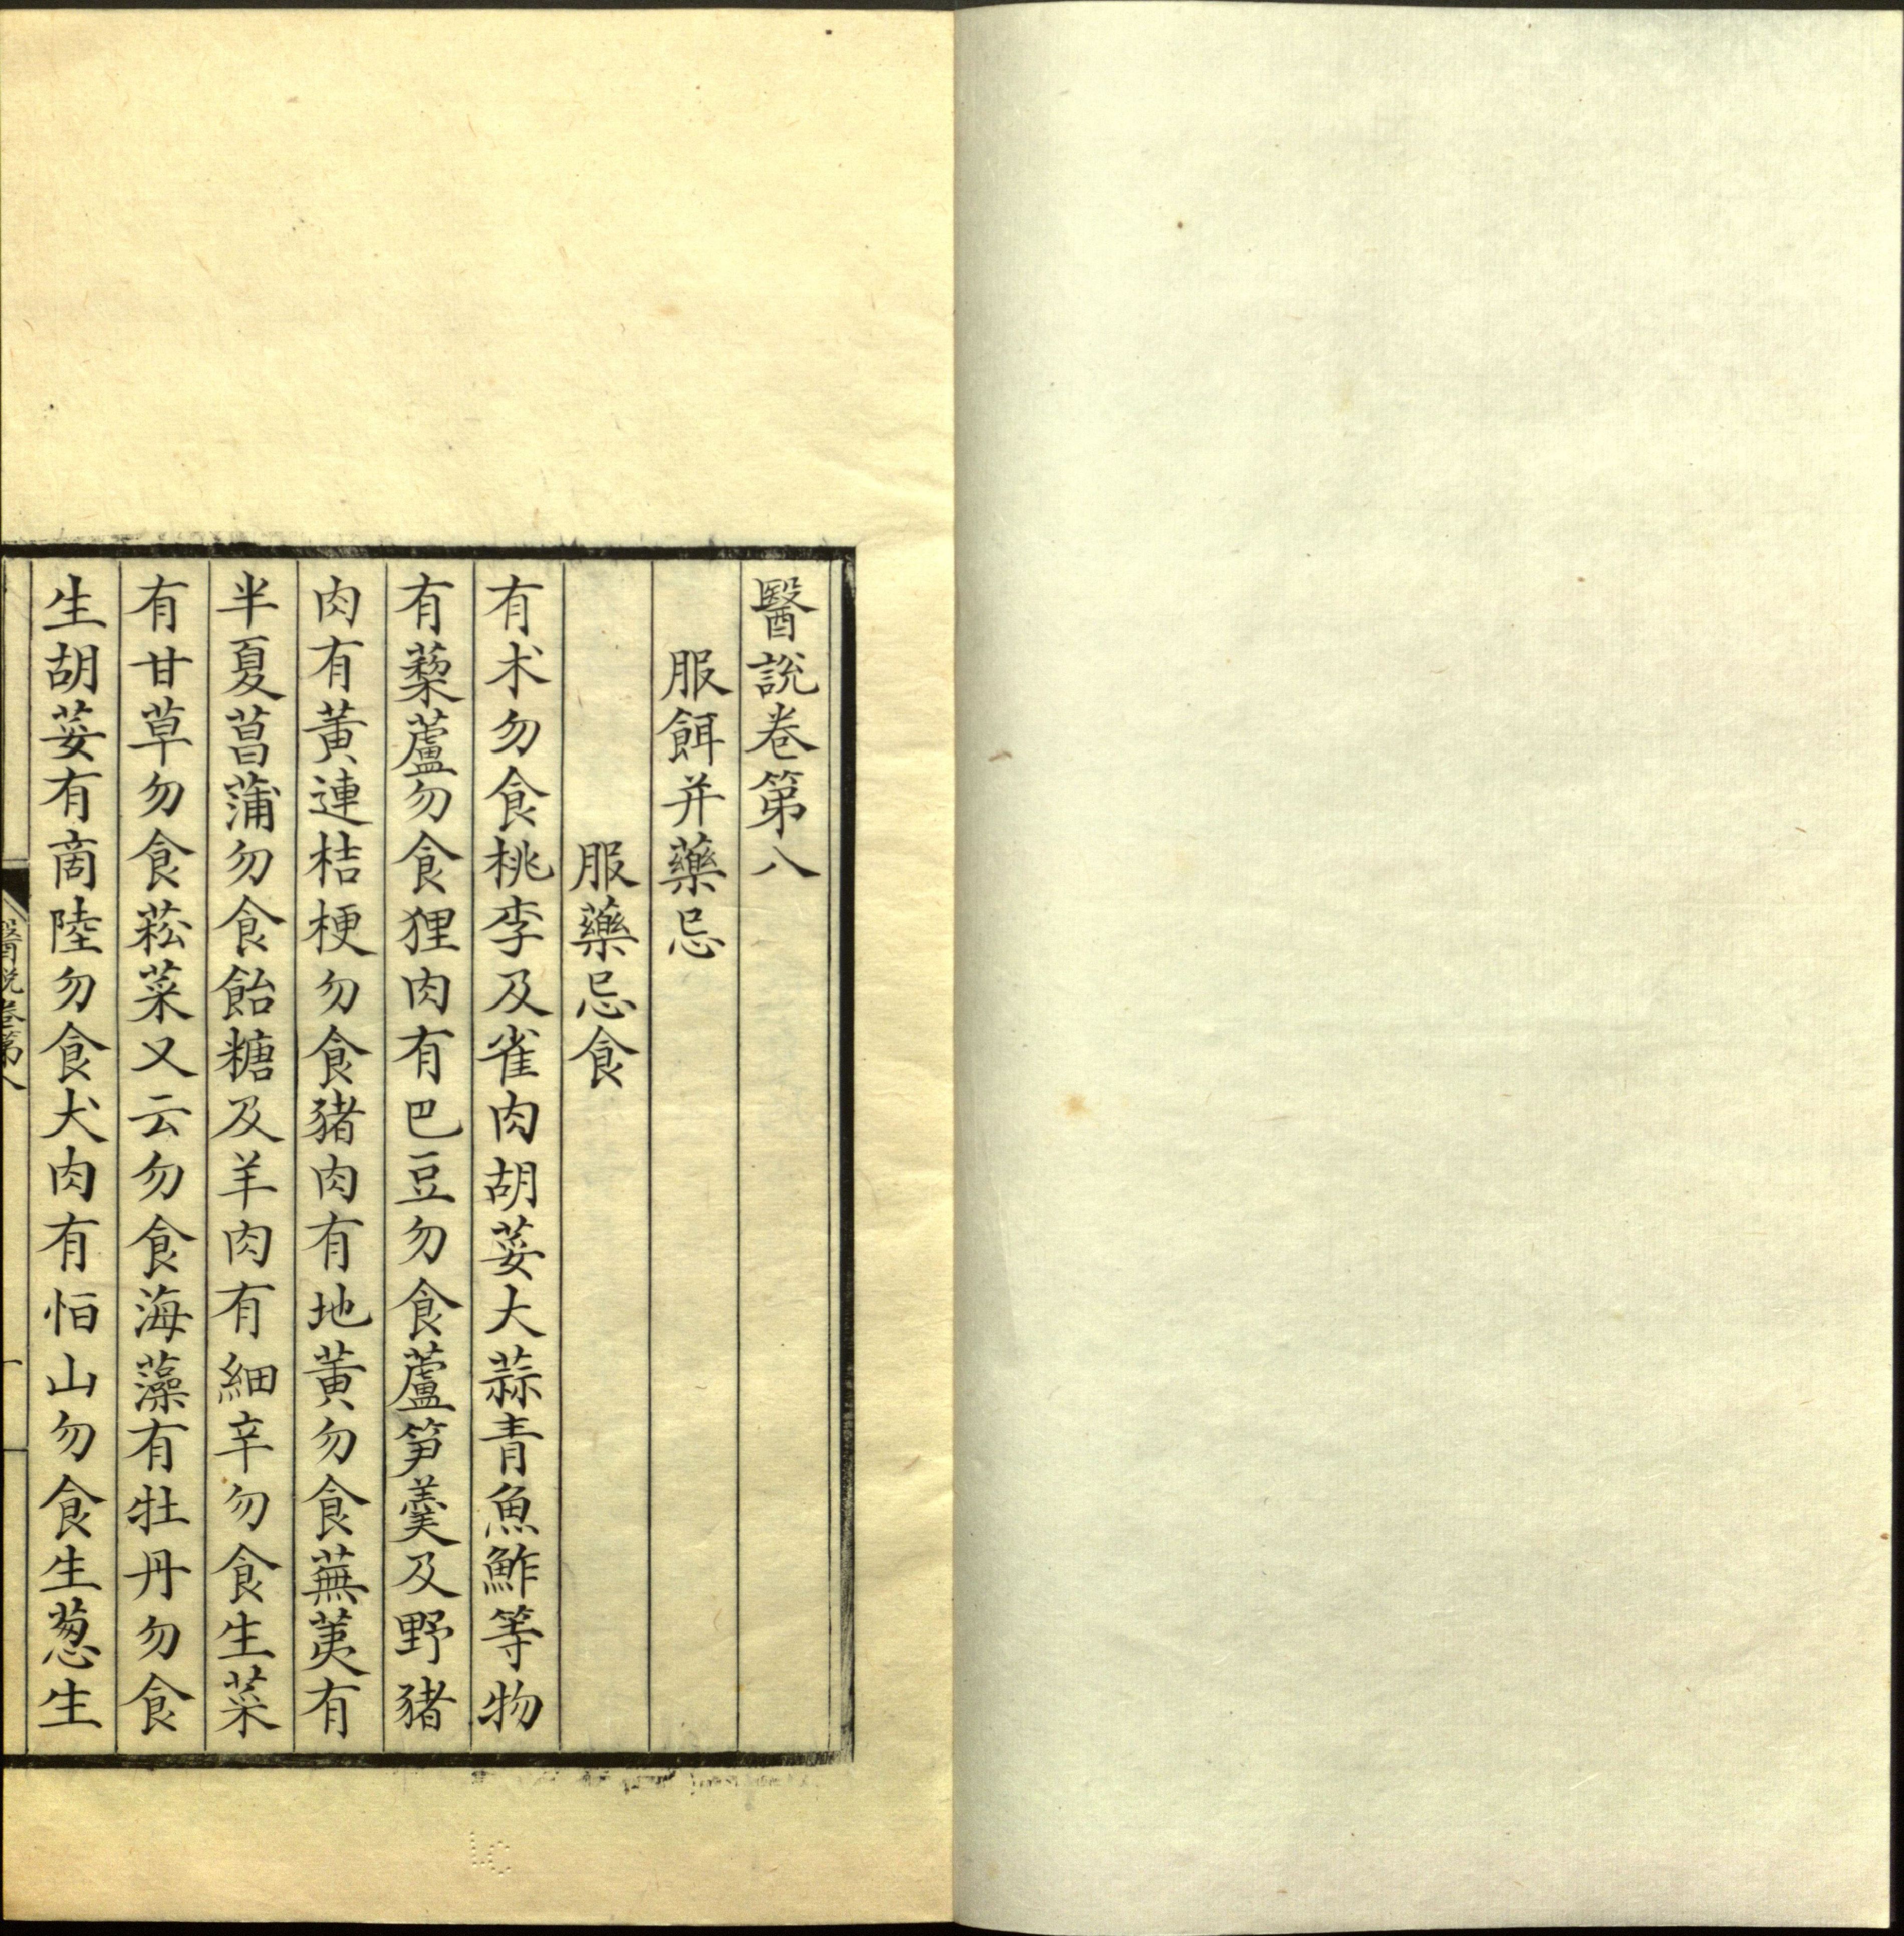 醫說卷第八
服餌并藥忌
服藥忌食
有朮勿食桃李及雀肉胡荽大蒜青魚鮓等物
有藜蘆勿食狸肉有巴豆勿食蘆笋羹及野猪
肉有黃連桔梗勿食猪肉有地黃勿食蕪荑有
半夏菖蒲勿食飴糖及羊肉有細辛勿食生菜
有甘草勿食菘菜又云勿食海藻有牡丹勿食
生胡荽有商陸勿食犬肉有恒山勿食生葱生
醫說卷第八